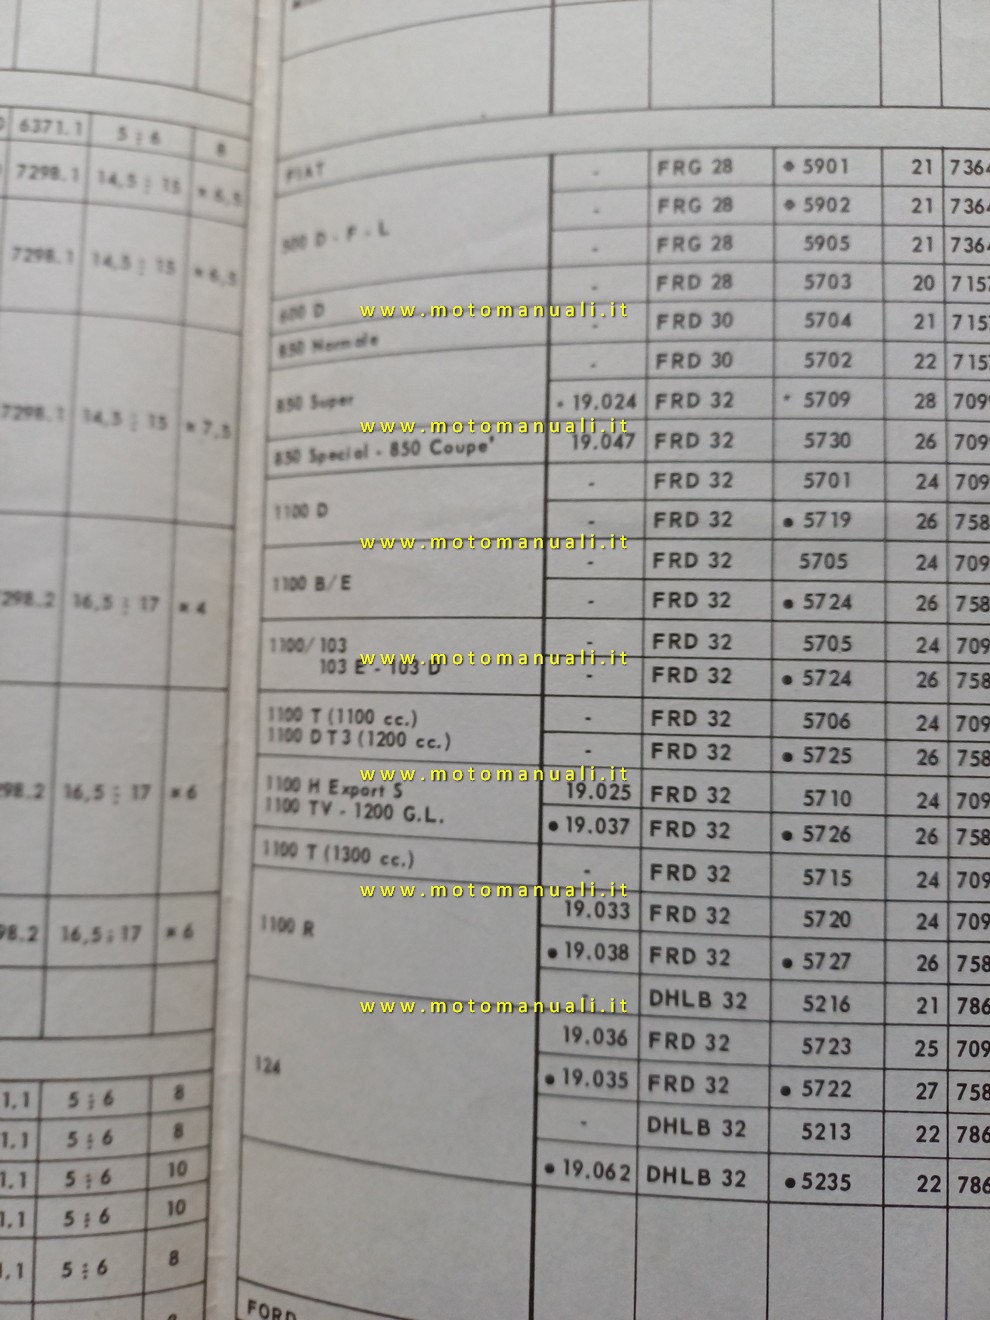 6371.1 5 ÷ 6 8
7298.1 14,5 ÷ 15 * 6,5
7298.1 14,5 ÷ 15 * 6,5
7298.1 14,5 ÷ 15 * 7,5
298.2 16,5 ÷ 17 * 4
98.2 16,5 ÷ 17 * 6
98.2 16,5 ÷ 17 * 6
1.1 5 ÷ 6 8
1.1 5 ÷ 6 8
1.1 5 ÷ 6 10
1.1 5 ÷ 6 10
1.1 5 ÷ 6 8
FIAT
500 D - F - L
600 D
850 Normale
850 Super
850 Special - 850 Coupe'
1100 D
1100 B/E
1100/103
103 E - 103 D
1100 T (1100 cc.)
1100 D T 3 (1200 cc.)
1100 H Export S
1100 TV - 1200 G.L.
1100 T (1300 cc.)
1100 R
124
FORD
- FRG 28 • 5901 21 7364
- FRG 28 • 5902 21 7364
- FRG 28 5905 21 7364
- FRD 28 5703 20 7157
- FRD 30 5704 21 7157
- FRD 30 5702 22 7157
• 19.024 FRD 32 * 5709 28 709
19.047 FRD 32 5730 26 709
- FRD 32 5701 24 709
- FRD 32 • 5719 26 758
- FRD 32 5705 24 709
- FRD 32 • 5724 26 758
- FRD 32 5705 24 709
- FRD 32 • 5724 26 758
- FRD 32 5706 24 709
- FRD 32 • 5725 26 758
19.025 FRD 32 5710 24 709
• 19.037 FRD 32 • 5726 26 758
- FRD 32 5715 24 709
19.033 FRD 32 5720 24 709
• 19.038 FRD 32 • 5727 26 758
- DHLB 32 5216 21 786
19.036 FRD 32 5723 25 709
• 19.035 FRD 32 • 5722 27 758
- DHLB 32 5213 22 786
• 19.062 DHLB 32 • 5235 22 786
www.motomanuali.it
www.motomanuali.it
www.motomanuali.it
www.motomanuali.it
www.motomanuali.it
www.motomanuali.it
www.motomanuali.it